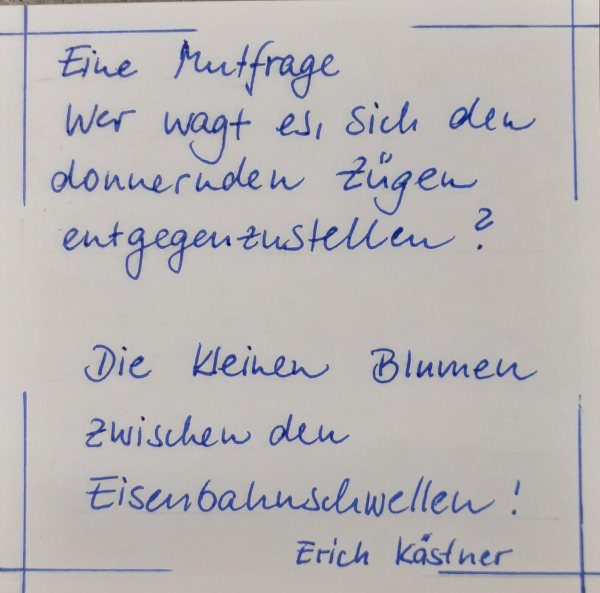 Eine Mutfrage
Wer wagt es, sich den
donnernden Zügen
entgegenzustellen?
Die kleinen Blumen
zwischen den
Eisenbahnschwellen!
Erich Kästner